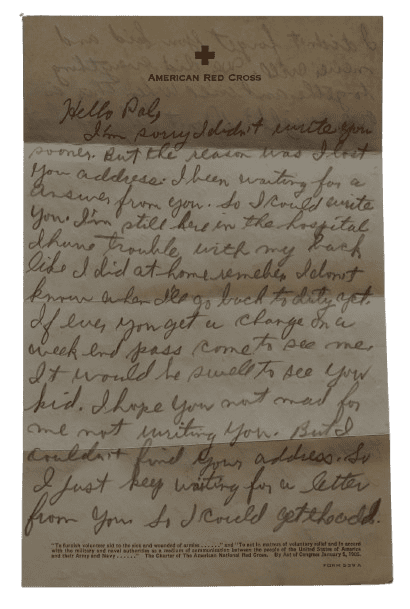 AMERICAN RED CROSS
Hello Pal,
I'm sorry I didn't write you
sooner. But the reason was I lost
you address. I been waiting for a
answer from you. So I could write
you. I'm still here in the hospital
I have trouble with my back
like I did at home remember I don't
know when I'll go back to duty yet.
If ever you get a change on a
week end pass come to see me
It would be swell to see you
kid. I hope you not mad for
me not writing you. But I
couldn't find your address. So
I just keep waiting for a letter
from you so I could get the add.
"To furnish volunteer aid to the sick and wounded of armies . . . . . . ." and "To act in matters of voluntary relief and in accord
with the military and naval authorities as a medium of communication between the people of the United States of America
and their Army and Navy . . . . . . ." The Charter of The American National Red Cross. By Act of Congress January 5, 1905.
FORM 539 A